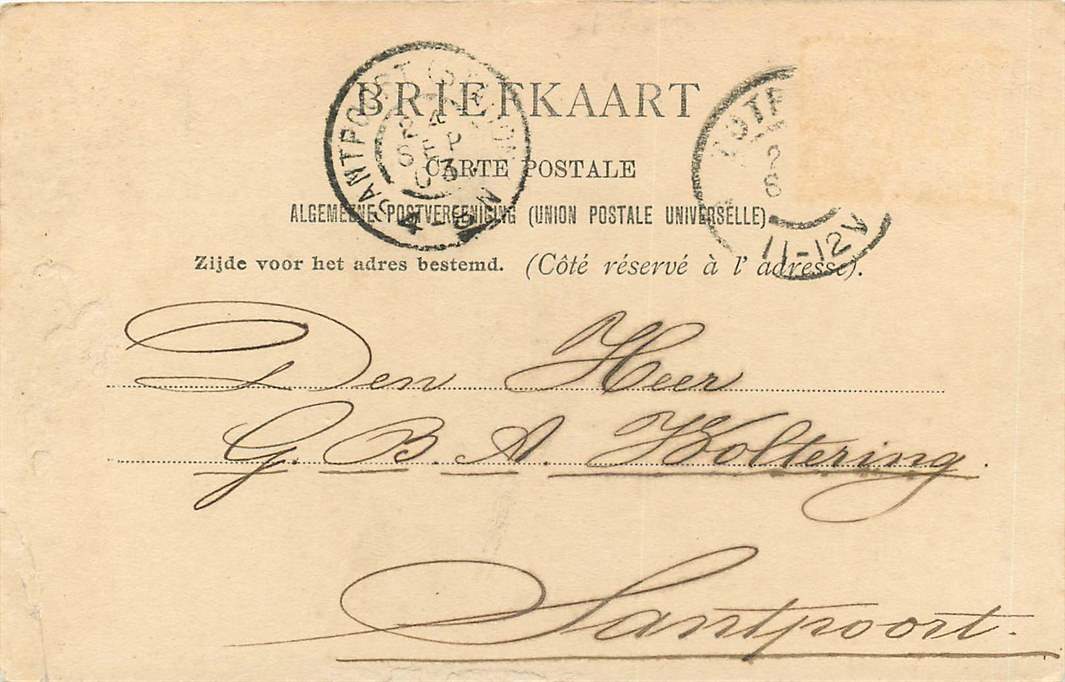 BRIEFKAART
CARTE POSTALE
ALGEMEENE POSTVEREENIGING (UNION POSTALE UNIVERSELLE)
Zijde voor het adres bestemd. (Côté réservé à l' adresse).
SANTPOORT
SEP
03
11-12V
Den Heer
G. B. A. Woltering.
Santpoort.